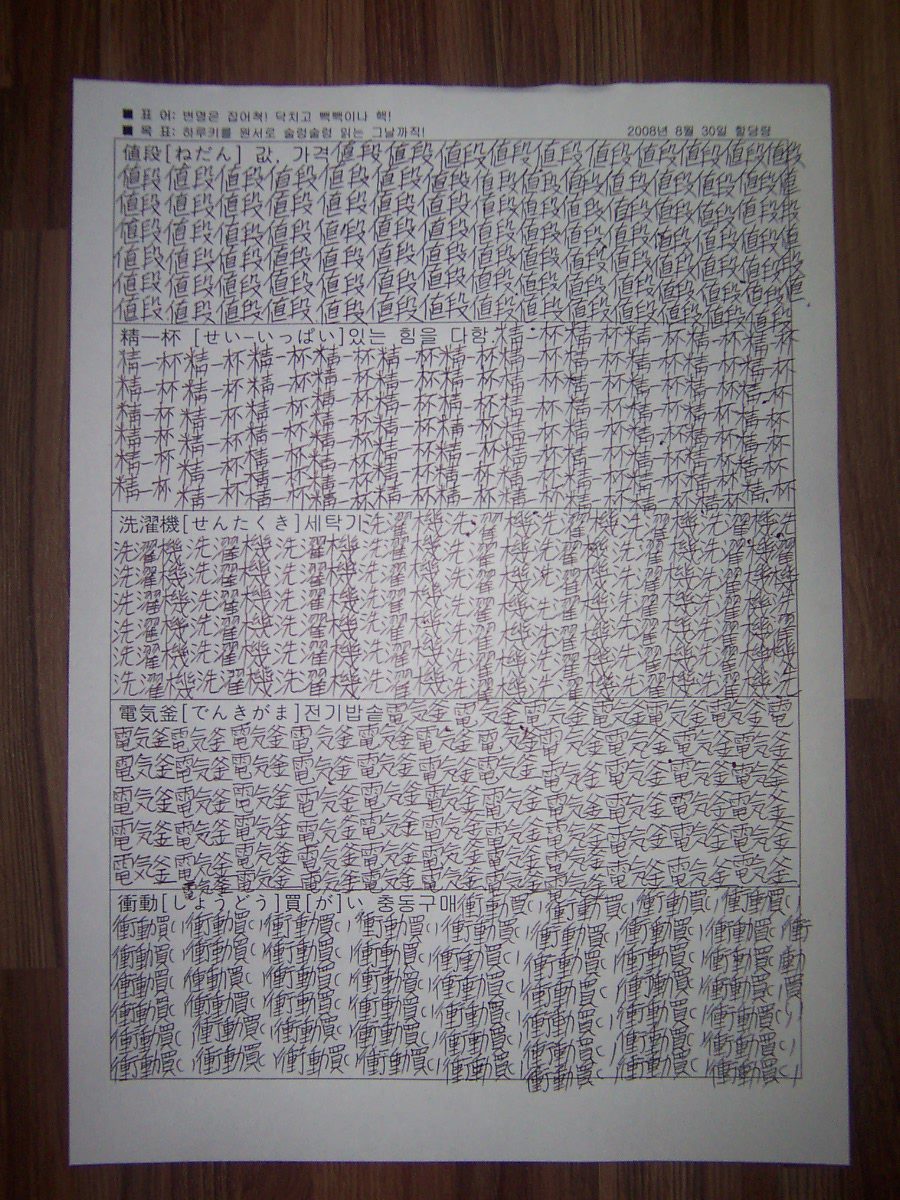 ■ 표 어: 변명은 집어쳐! 닥치고 빽빽이나 핵!
■ 목 표: 하루키를 원서로 술렁술렁 읽는 그날까직!
2008년 8월 30일 할당량
値段[ねだん] 값, 가격 値段 値段 値段 値段 値段 値段 値段 値段 値段
値段 値段 値段 値段 値段 値段 値段 値段 値段 値段 値段 値段 値段
値段 値段 値段 値段 値段 値段 値段 値段 値段 値段 値段 値段 値段
値段 値段 値段 値段 値段 値段 値段 値段 値段 値段 値段 値段 値段
値段 値段 値段 値段 値段 値段 値段 値段 値段 値段 値段 値段 値段
値段 値段 値段 値段 値段 値段 値段 値段 値段 値段 値段 値段 値段
値段 値段 値段 値段 値段 値段 値段 値段 値段 値段 値段 値段 値段
精一杯 [せい-いっぱい]있는 힘을 다함. 精一杯 精一杯 精一杯 精一杯 精一杯
精一杯 精一杯 精一杯 精一杯 精一杯 精一杯 精一杯 精一杯 精一杯 精一杯
精一杯 精一杯 精一杯 精一杯 精一杯 精一杯 精一杯 精一杯 精一杯 精一杯
精一杯 精一杯 精一杯 精一杯 精一杯 精一杯 精一杯 精一杯 精一杯 精一杯
精一杯 精一杯 精一杯 精一杯 精一杯 精一杯 精一杯 精一杯 精一杯 精一杯
精一杯 精一杯 精一杯 精一杯 精一杯 精一杯 精一杯 精一杯 精一杯 精一杯
精一杯 精一杯 精一杯 精一杯 精一杯 精一杯 精一杯 精一杯 精一杯 精一杯
洗濯機[せんたくき]세탁기 洗濯機 洗濯機 洗濯機 洗濯機 洗濯機 洗
洗濯機 洗濯機 洗濯機 洗濯機 洗濯機 洗濯機 洗濯機 洗濯機 濯
洗濯機 洗濯機 洗濯機 洗濯機 洗濯機 洗濯機 洗濯機 洗濯機
洗濯機 洗濯機 洗濯機 洗濯機 洗濯機 洗濯機 洗濯機 洗濯機
洗濯機 洗濯機 洗濯機 洗濯機 洗濯機 洗濯機 洗濯機 洗濯機
洗濯機 洗濯機 洗濯機 洗濯機 洗濯機 洗濯機 洗濯機 洗濯機
洗濯機 洗濯機 洗濯機 洗濯機 洗濯機 洗濯機 洗濯機 洗濯機
電気釜[でんきがま]전기밥솥 電気釜 電気釜 電気釜 電気釜 電気釜 電気釜 電
電気釜 電気釜 電気釜 電気釜 電気釜 電気釜 電気釜 電気釜 電気釜 電気釜 電気釜
電気釜 電気釜 電気釜 電気釜 電気釜 電気釜 電気釜 電気釜 電気釜 電気釜 電気釜
電気釜 電気釜 電気釜 電気釜 電気釜 電気釜 電気釜 電気釜 電気釜 電気釜 電気釜
電気釜 電気釜 電気釜 電気釜 電気釜 電気釜 電気釜 電気釜 電気釜 電気釜 電気釜
電気釜 電気釜 電気釜 電気釜 電気釜 電気釜 電気釜 電気釜 電気釜 電気釜 電気釜
電気釜
衝動[しょうどう]買[が]い 충동구매 衝動買い 衝動買い 衝動買い 衝動買い
衝動買い 衝動買い 衝動買い 衝動買い 衝動買い 衝動買い 衝動買い 衝動買い 衝
衝動買い 衝動買い 衝動買い 衝動買い 衝動買い 衝動買い 衝動買い 衝動買い 動
衝動買い 衝動買い 衝動買い 衝動買い 衝動買い 衝動買い 衝動買い 衝動買い 買
衝動買い 衝動買い 衝動買い 衝動買い 衝動買い 衝動買い 衝動買い 衝動買い い
衝動買い 衝動買い 衝動買い 衝動買い 衝動買い 衝動買い 衝動買い 衝動買い
衝動買い 衝動買い 衝動買い 衝動買い 衝動買い 衝動買い 衝動買い 衝動買い